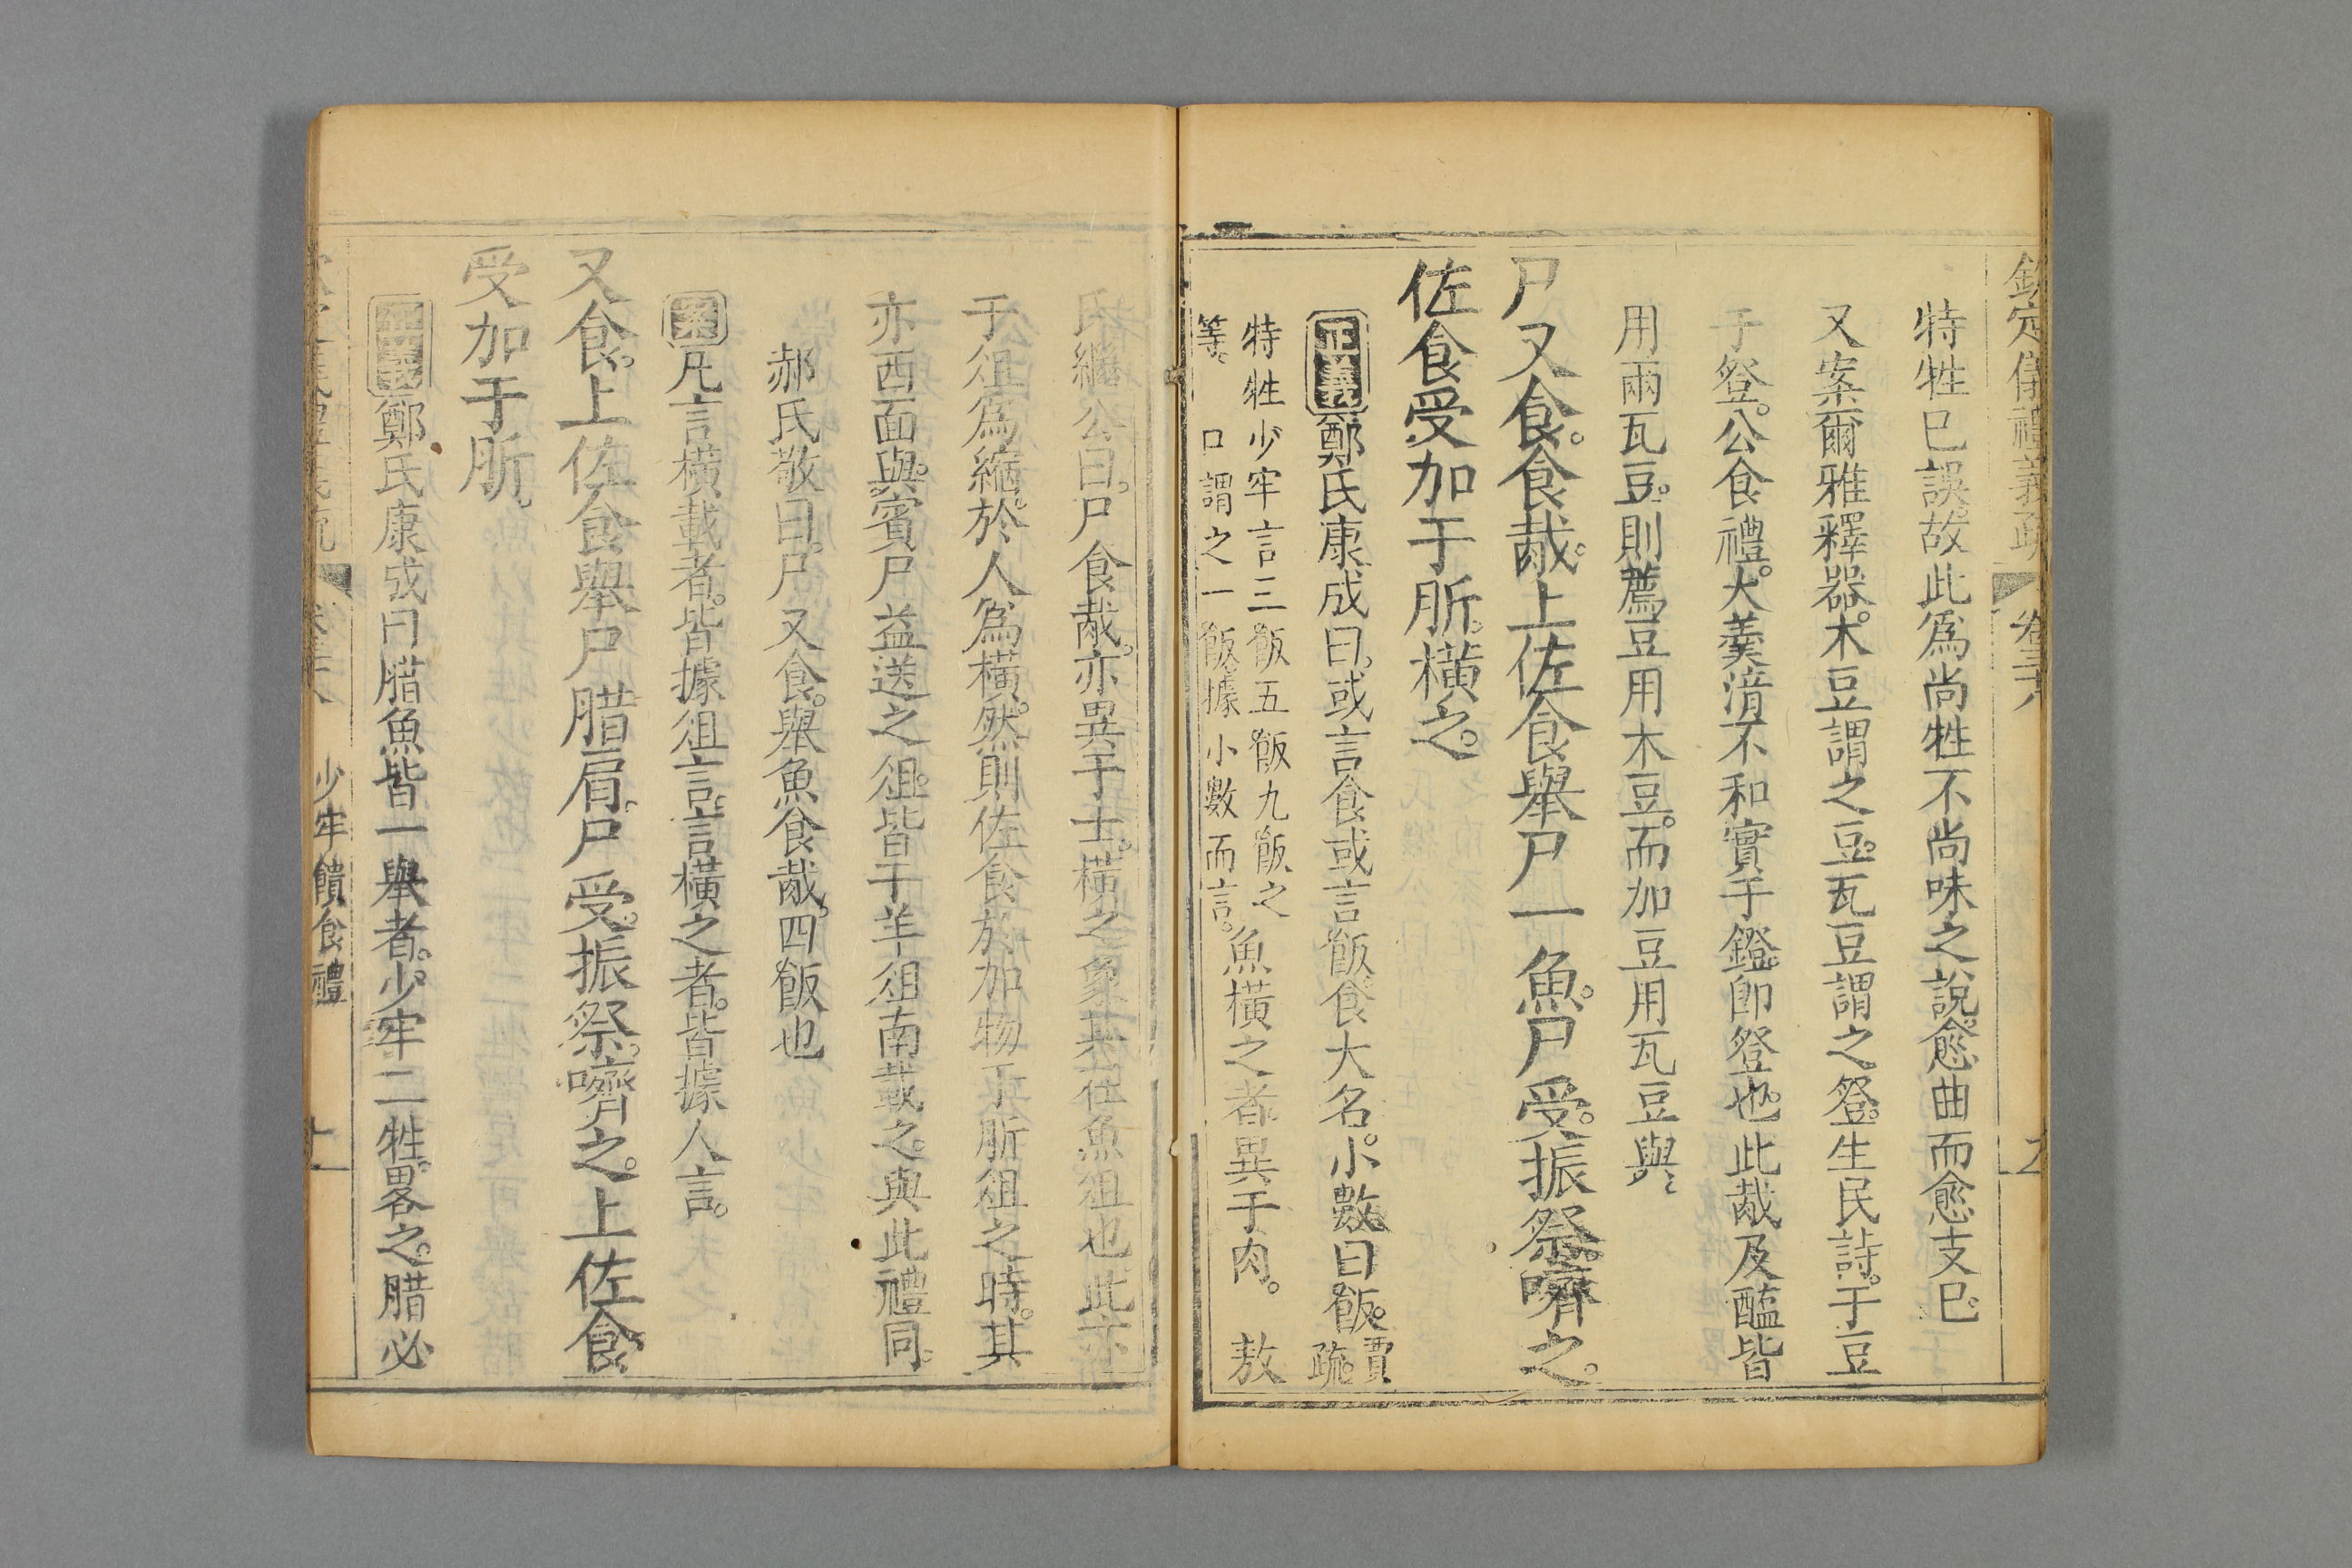 欽定儀禮義疏 卷三十八
特牲已誤。故此爲尚牲不尚味之說。愈曲而愈支已。
又案爾雅釋器。木豆謂之豆。瓦豆謂之登。生民詩。于豆
于登。公食禮。大羹湆不和實于鐙。卽登也。此胾及醢皆
用兩瓦豆。則薦豆用木豆。而加豆用瓦豆與
尸又食。食胾。上佐食舉尸一魚。尸受。振祭。嚌之。
佐食受加于肵。橫之。
正義鄭氏康成曰。或言食或言飯食大名。小數曰飯。賈疏。
特牲少牢言三飯五飯九飯之
等。口謂之一飯據小數而言。魚橫之者異于肉。 敖
氏繼公曰。尸食胾。亦異于士。橫之象其在魚俎也此亦
于俎爲縮。於人爲橫。然則佐食於加物于肵俎之時。其
亦西面與。賓尸益送之俎。皆于羊俎南載之。與此禮同。
郝氏敬曰。尸又食。舉魚食胾。四飯也
案凡言橫載者。皆據俎言。言橫之者。皆據人言。
又食。上佐食舉尸腊肩。尸受。振祭。嚌之。上佐食
受加于肵。
正義鄭氏康成曰腊魚皆一舉者。少牢二牲。畧之。腊必
少牢饋食禮